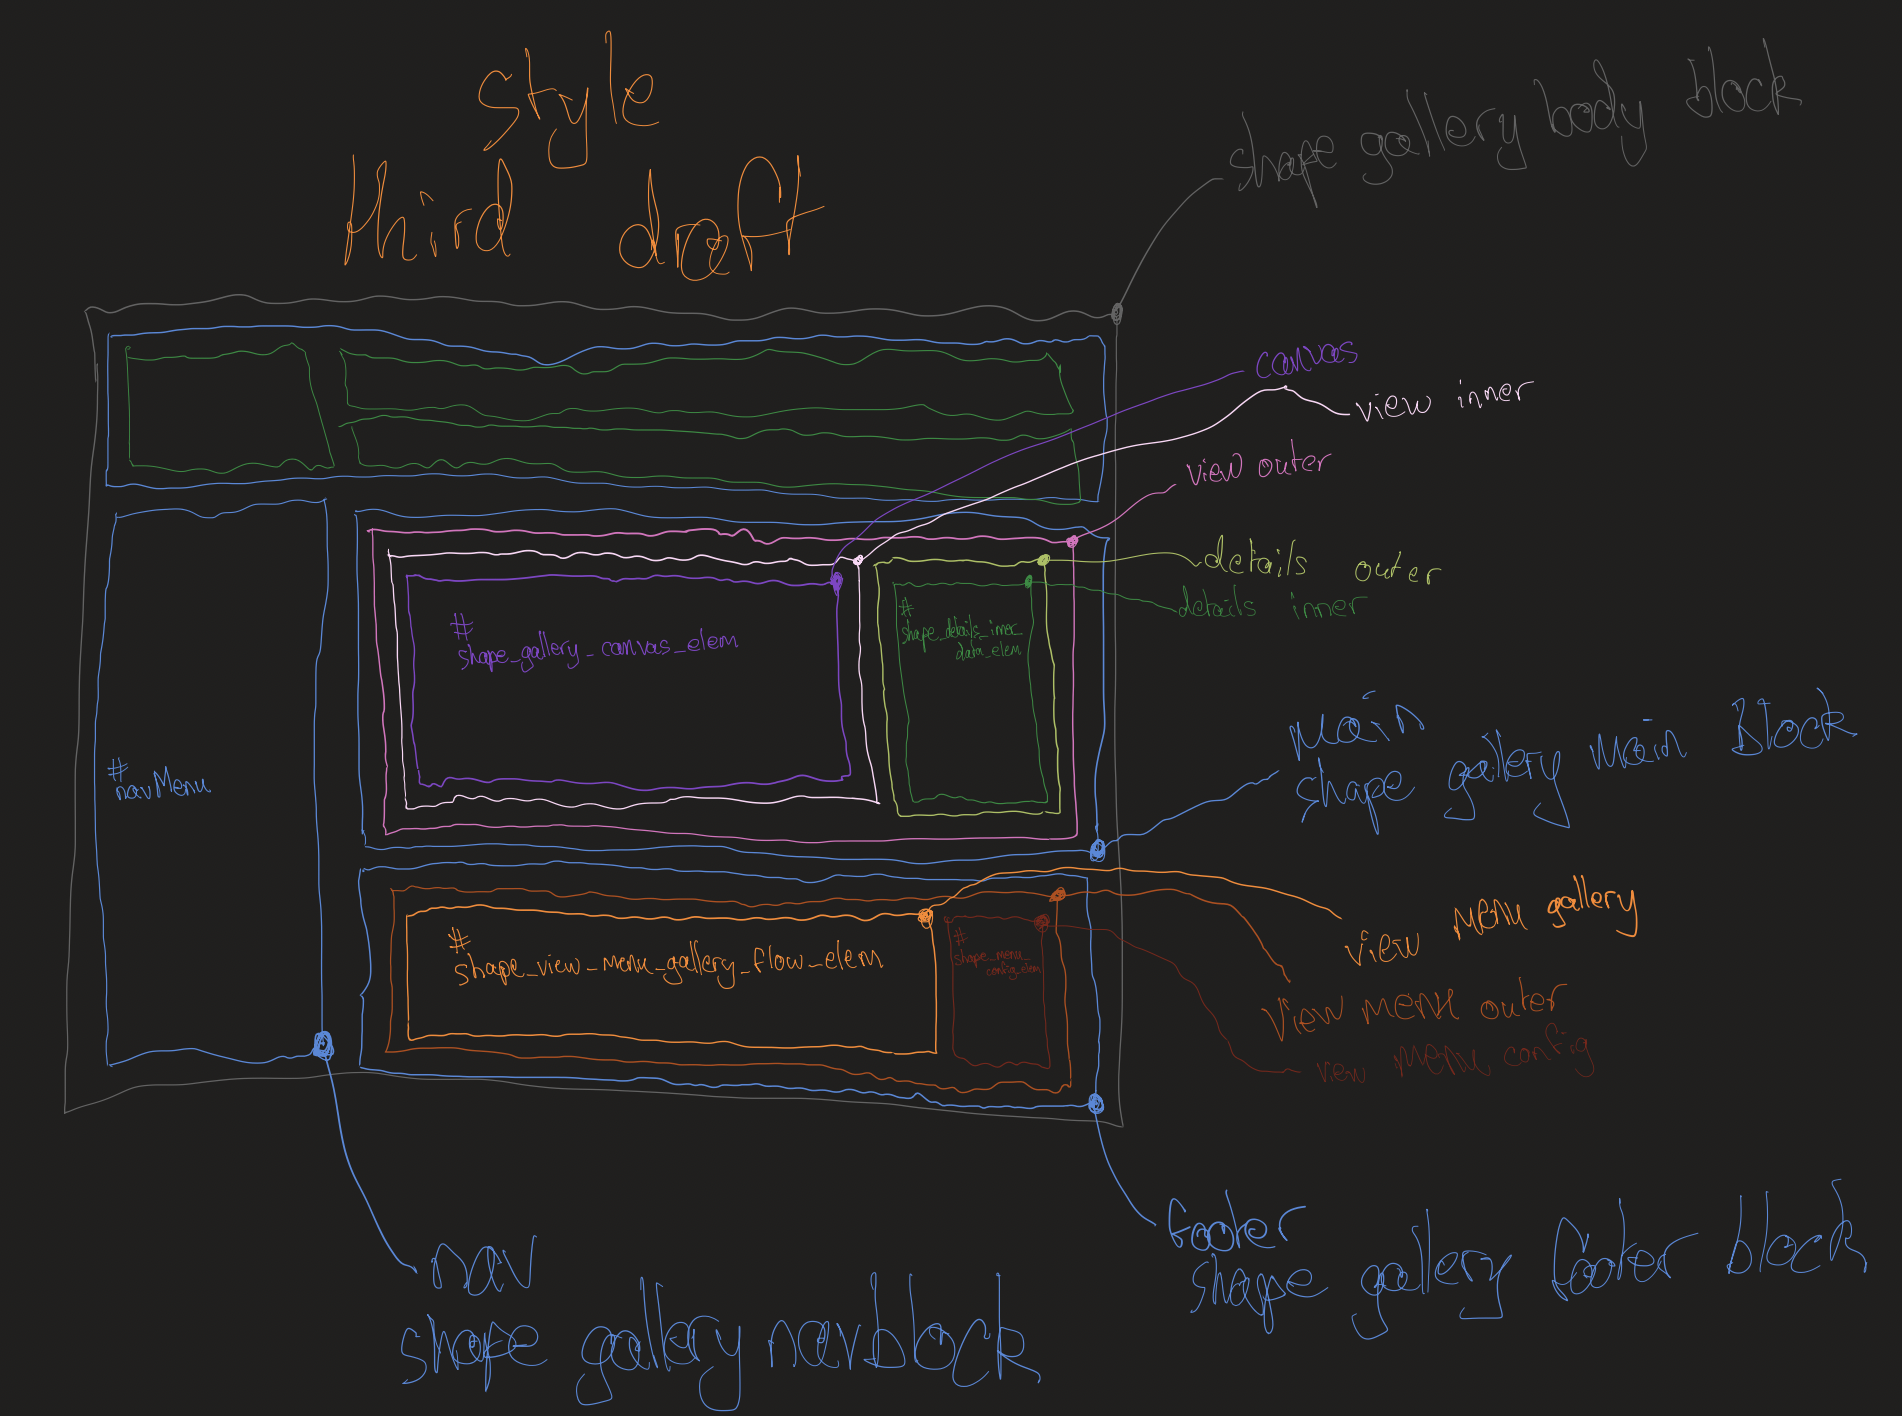 style
third draft
shape gallery body block
canvas
view inner
view outer
details outer
details inner
#
shape_gallery_canvas_elem
#
shape_details_inner_
data_elem
#
navMenu
main
shape gallery main Block
#
shape_view_menu_gallery_flow_elem
#
shape_menu_
config_elem
view menu gallery
view menu outer
view menu config
nav
shape gallery nav block
footer
shape gallery footer block